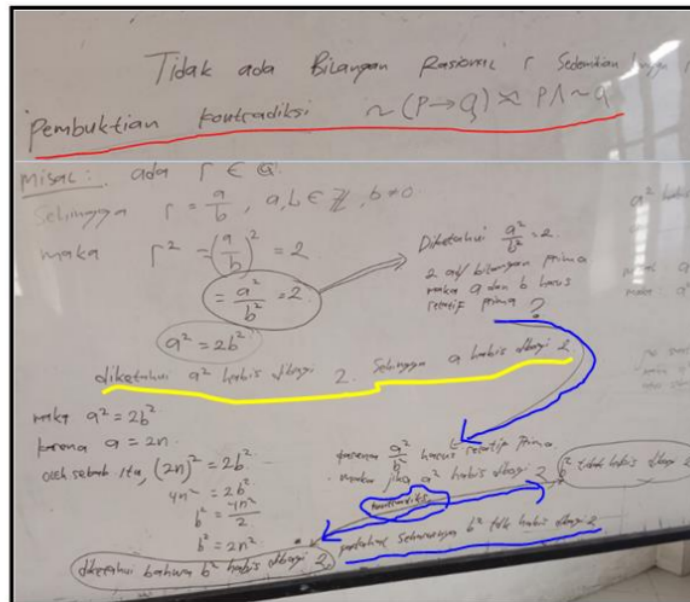 Tidak ada Bilangan Rasional r Sedemikian
Pembuktian kontradiksi ~(P→Q) ≈ P∧~q
Misal: ada r ∈ Q
Sehingga r = a/b, a,b ∈ Z, b≠0.
maka r² = (a/b)² = 2
= a²/b² = 2.
a² = 2b²
Diketahui a²/b² = 2.
2 adl bilangan prima
maka a dan b harus
relatif prima ?
diketahui a² habis dibagi 2. Sehingga a habis dibagi 2.
maka a² = 2b²
karena a = 2n.
oleh sebab itu, (2n)² = 2b²
4n² = 2b²
b² = 4n²/2
b² = 2n²
diketahui bahwa b² habis dibagi 2.
karena a²/b² harus relatif prima
maka jika a² habis dibagi 2, b² tidak habis dibagi 2
kontradiksi
padahal seharusnya b² tdk habis dibagi 2